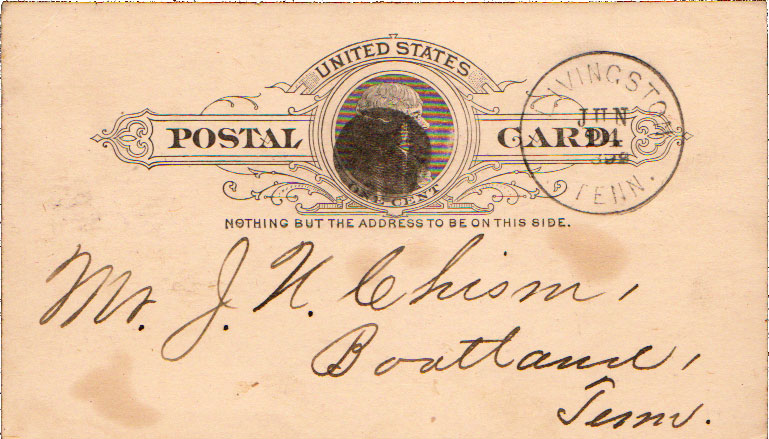 UNITED STATES
POSTAL CARD
ONE CENT
NOTHING BUT THE ADDRESS TO BE ON THIS SIDE.
LIVINGSTON
JUN
TENN.
Mr. J. N. Chism,
Boatland,
Tenn.